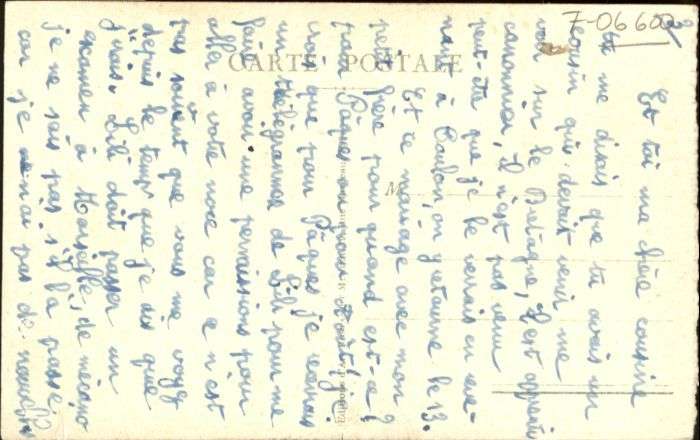 CARTE POSTALE
7-06 600
2
M
Et toi ma chère cousine
tu me disais que tu avais un
cousin qui devait venir me
voir sur le Bretagne, il est apprenti
canonnier, il n'est pas venu
peut être que je le verrais en
nant à Toulon, on y retourne le 13.
Et ce mariage avec mon
petit frère pour quand est-ce?
pour Pâques ou pour Août? je
crois que pour Pâques je recevrais
un télégramme de Lili pour me
faire avoir une permission pour
aller à votre noce car ce n'est
pas souvent que vous me voyez
depuis le temps que je dis que
j'irais. Lili doit passer un
examen à Marseille, de mécano
je ne sais pas s'il l'a passé
car je n'ai pas de nouvelles